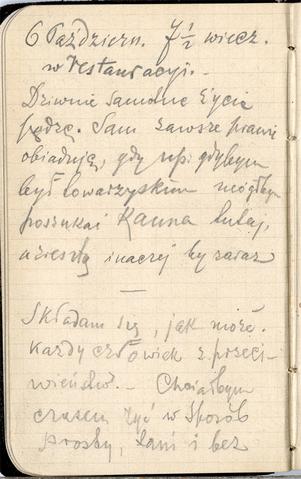 6 Październ. 7 1/2 wiecz.
w restauracyi. —
Dziwnie samotne życie
pędzę. Sam zawsze prawie
obiaduję, gdy np. gdybym
był towarzyskim mógłbym
poszukać Rauna tutaj,
a zresztą inaczej by zaraz
—
Składam się, jak może
każdy człowiek z przeci-
wieństw. — Chciałbym
czasem żyć w sposób
prosty, tani i bez